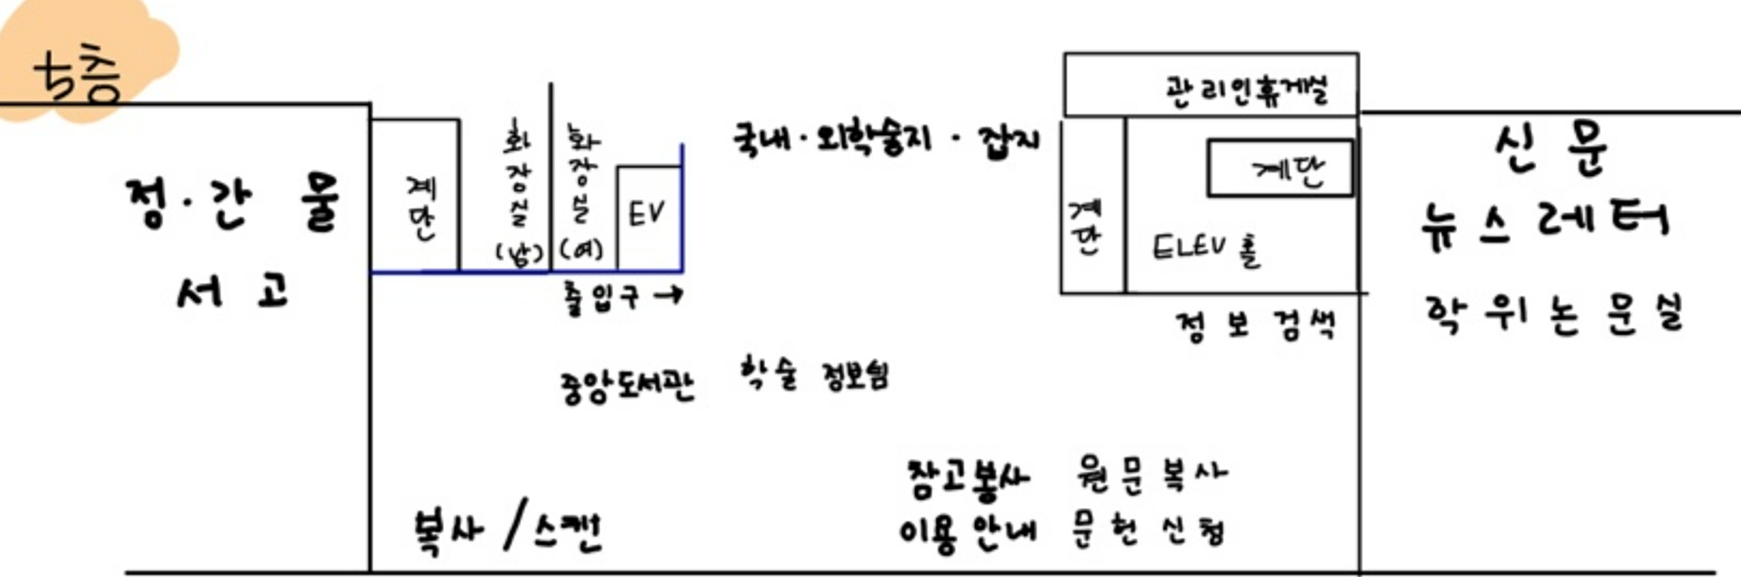 5층
정·간물
서고
계단
화장실
(남)
화장실
(여)
EV
출입구 →
국내·외학술지·잡지
관리인휴게실
계단
계단
ELEV 홀
정보검색
신문
뉴스레터
학위논문실
중앙도서관 학술 정보팀
참고봉사 원문복사
이용안내 문헌신청
복사/스캔